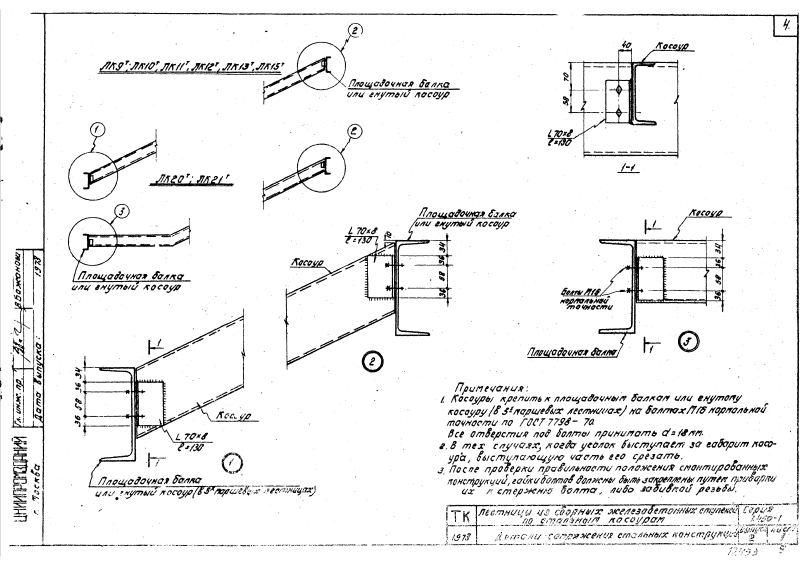 4.
ЛК9т; ЛК10т, ЛК11т, ЛК12т, ЛК13т, ЛК15т
2
Площадочная балка
или гнутый косоур
40
Косоур
70
58
L 70×8
ℓ=130
1-1
1
2
ЛК20т; ЛК21т
3
Площадочная балка
или гнутый косоур
Площадочная балка
или гнутый косоур
L 70×8
ℓ=130
10
Косоур
36 34
58
36
2
1
Косоур
36 34
58
36
Болты М16
нормальной
точности
Площадочная балка
1
3
1
34
36
58
36
Косоур
L 70×8
ℓ=130
1
1
Площадочная балка
или гнутый косоур (в 3х маршевых лестницах)
Примечания:
1. Косоуры крепить к площадочным балкам или гнутому
косоуру (в 3х маршевых лестницах) на болтах М16 нормальной
точности по ГОСТ 7798-70.
Все отверстия под болты принимать d=18мм.
2. В тех случаях, когда уголок выступает за габарит косо-
ура, выступающую часть его срезать.
3. После проверки правильности положения смонтированных
конструкций, гайки болтов должны быть закреплены путем приварки
их к стержню болта, либо забивкой резьбы.
ТК
Лестницы из сборных железобетонных ступеней
по стальным косоурам
Серия
1978
Детали сопряжения стальных конструкций
выпуск
лист
Гл. инж. пр.
Дата выпуска:
1978
ЦНИИПРОМЗДАНИЙ
г. Москва